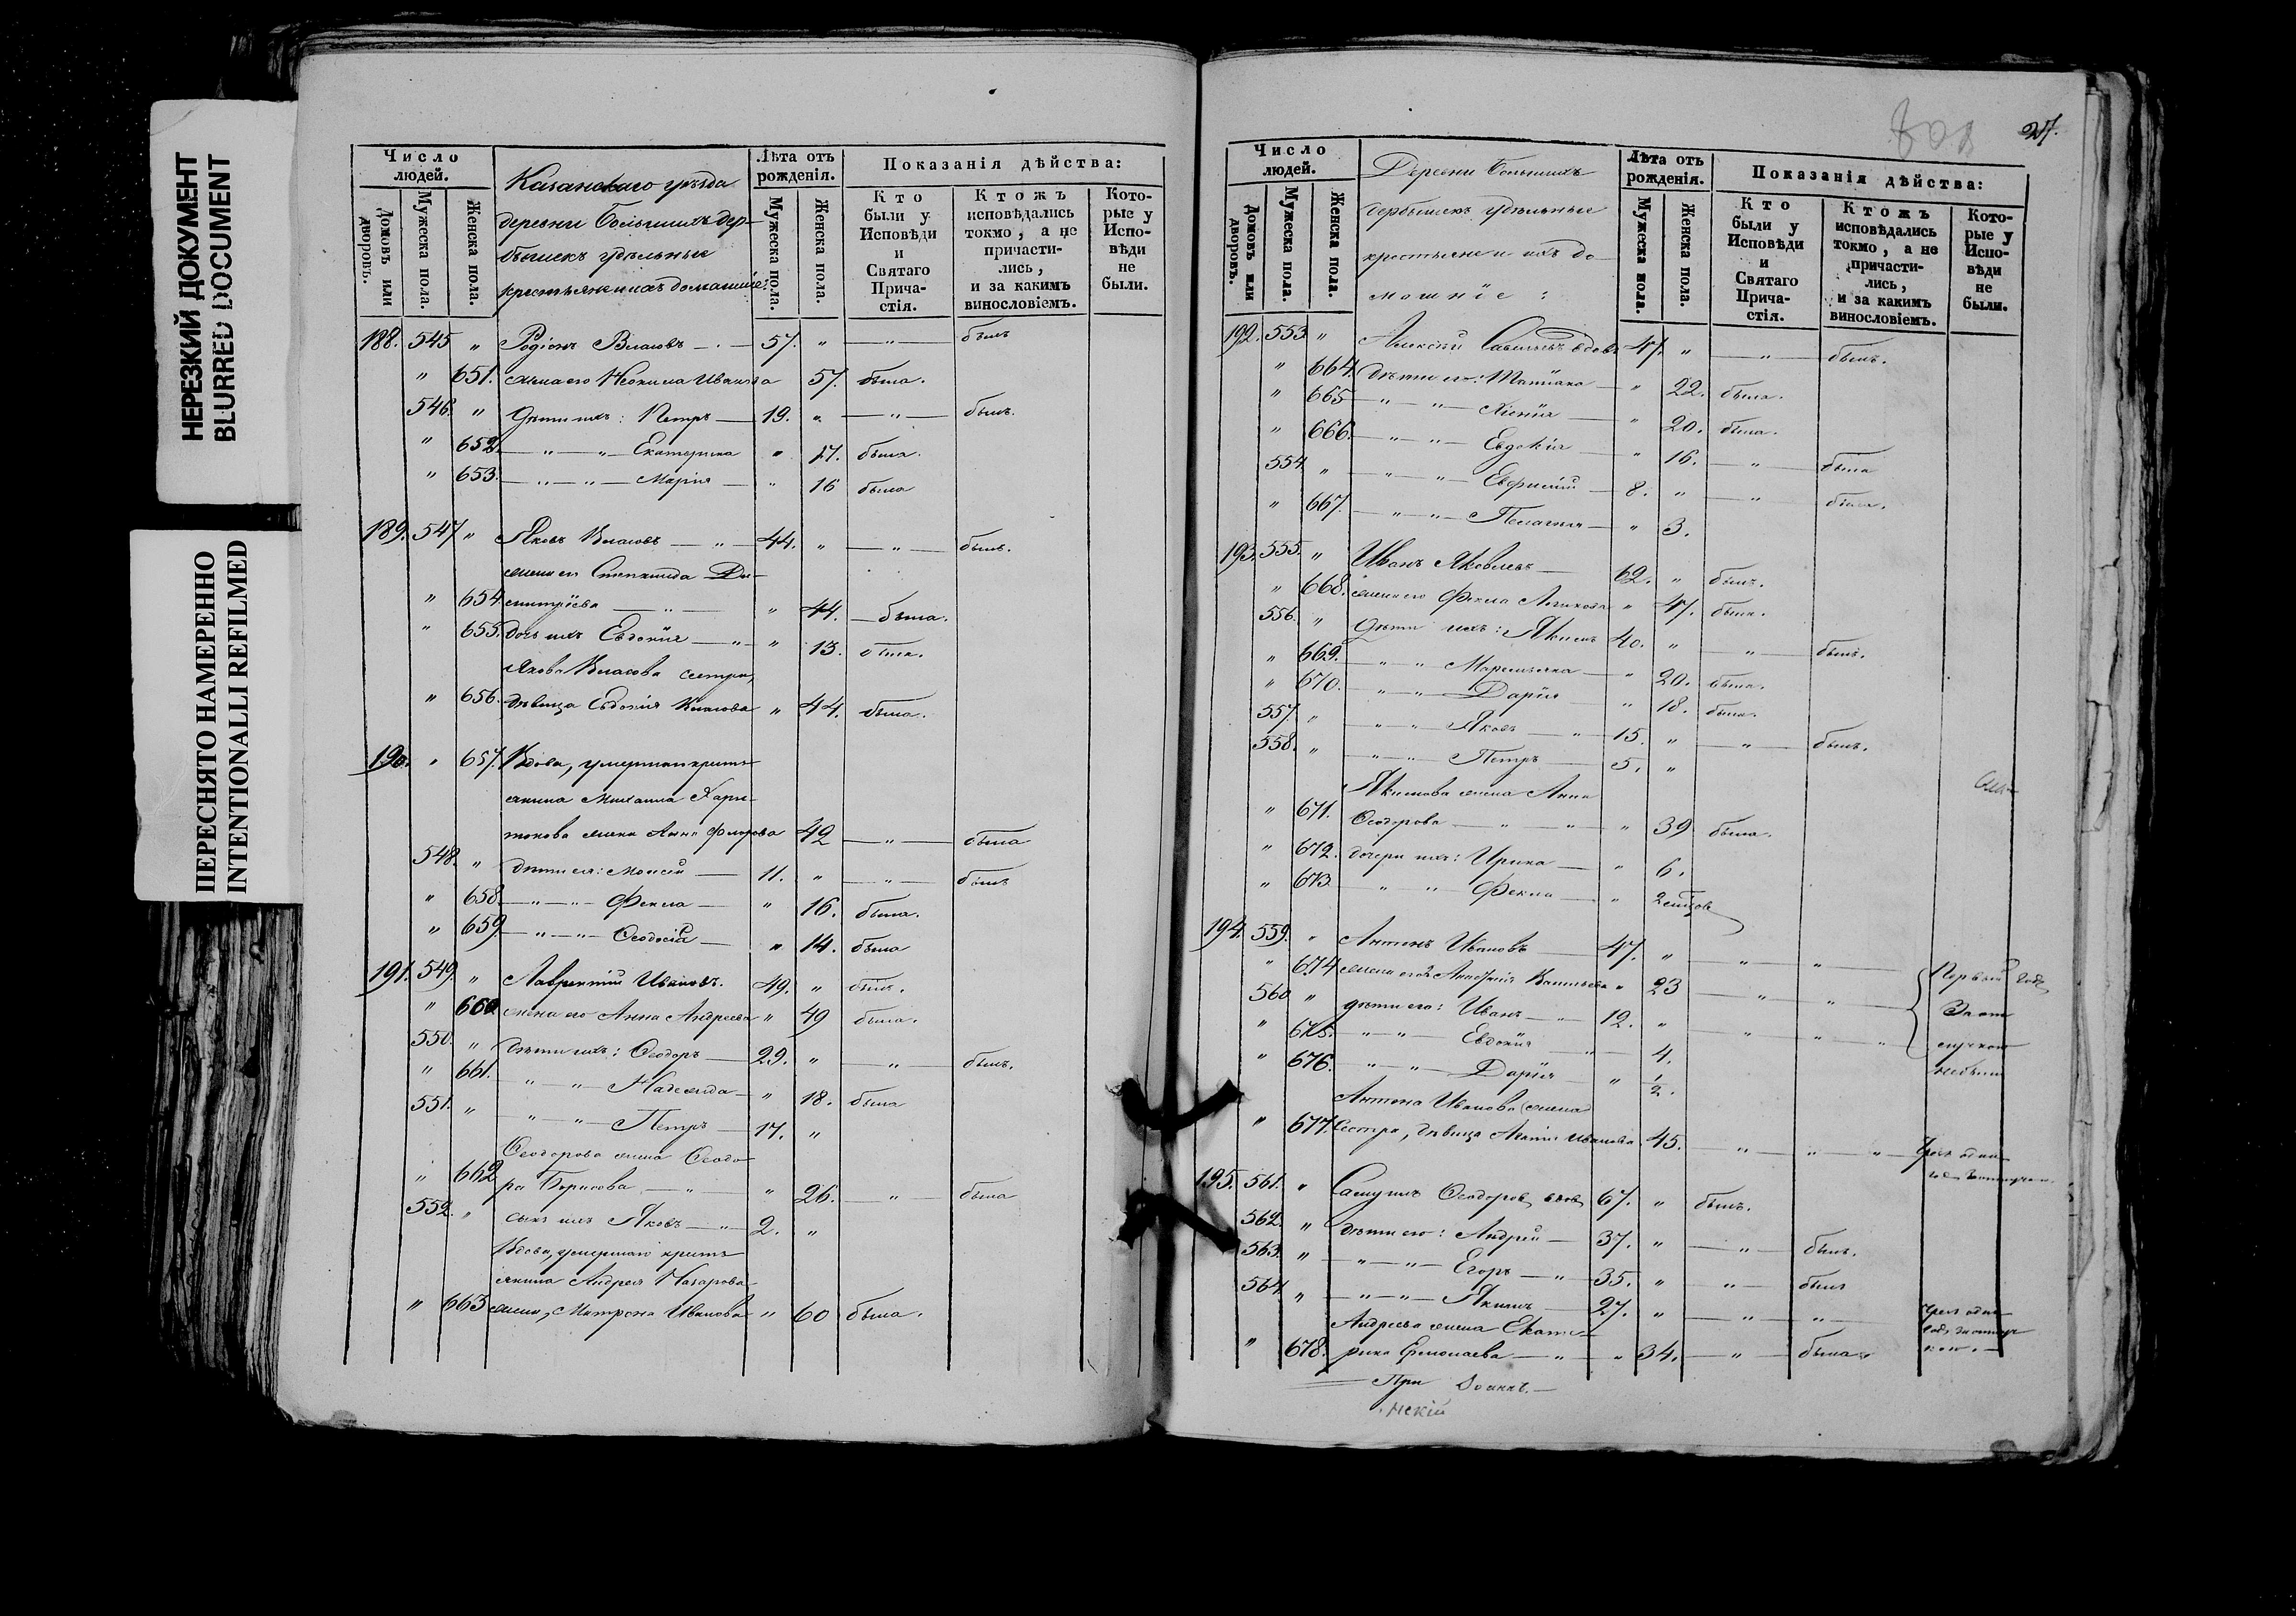 НЕРЕЗКИЙ ДОКУМЕНТ
BLURRED DOCUMENT
ПЕРЕСНЯТО НАМЕРЕННО
INTENTIONALLI REFILMED
Число людей.
Домовъ или дворовъ.
Мужеска пола.
Женска пола.
Казанскаго уѣзда
деревни Большихъ Дер-
бышекъ удѣльные
крестьяне и ихъ домашніе:
Лѣта отъ рожденія.
Мужеска пола.
Женска пола.
Показанія дѣйства:
Кто были у Исповѣди и Святаго Прича-стія.
Ктожъ исповѣдались токмо, а не причасти-лись, и за какимъ винословіемъ.
Кото-рые у Испо-вѣди не были.
188. 545 " Родіонъ Власовъ — 57. " — " — былъ
" 651. жена его Неонила Иванова 57. была.
546. " Дѣти ихъ: Петръ — 19. " — " — былъ.
" 652. — " — " — Екатерина " 17. была.
" 653. — " — " — Марія — " 16 была
189. 547 " Яковъ Власовъ — " — 44. " — " — былъ.
жена его Степанида Ди-
" 654 митріева — " — " 44. — была.
" 655. дочь ихъ Евдокія — " — " 13. была.
Якова Власова сестра,
" 656. дѣвица Евдокія Власова " 44. была.
190. " 657. Вдова, умершаго кресть-
янина Михаила Хари-
тонова жена Анна Флорова 42 — " — была
548. " дѣти ея: Моисей — 11. " — " — былъ
" 658 — " — " — Фекла — " 16. была.
" 659. — " — " — Ѳеодосія — " 14. была
191. 549. " Лаврентій Ивановъ. 49. " былъ.
" 660. жена его Анна Андреева " 49 была.
550. " дѣти ихъ: Ѳеодоръ — 29. " — " — былъ.
" 661. " " — Надежда — " 18. была
551. " " — " — Петръ — 17. "
Ѳеодорова жена Ѳеодо-
" 662 ра Борисова — " — " 26. — " — была
552. " сынъ ихъ Яковъ — " — 2. "
Вдова, умершаго кресть-
янина Андрея Назарова
" 663 жена, Матрона Иванова " 60 была.
27.
Число людей.
Домовъ или дворовъ.
Мужеска пола.
Женска пола.
Деревни Большихъ
Дербышекъ удѣльные
крестьяне и ихъ до-
машніе:
Лѣта отъ рожденія.
Мужеска пола.
Женска пола.
Показанія дѣйства:
Кто были у Исповѣди и Святаго Прича-стія.
Ктожъ исповѣдались токмо, а не причасти-лись, и за какимъ винословіемъ.
Кото-рые у Испо-вѣди не были.
192. 553 " Алексѣй Савельевъ вдовъ 47. " — " — былъ.
" 664. Дѣти его: Татіана — " 22. была.
" 665 — " — " — Ксенія — " 20. была.
" 666. — " — " — Евдокія — " 16. — " — была
554. " — " — " — Евфимій — 8. " — " — былъ.
" 667. — " — " — Пелагія — " 3.
193. 555. " Иванъ Яковлевъ — 62. " былъ.
" 668. жена его Фекла " 47. была.
556. " Дѣти ихъ: Якимъ 40. " — " — былъ.
" 669. — " — " — Маремьяна — " 20. была.
" 670. — " — " — Дарія " 18. была.
557. " — " — " — Яковъ — " — 15. " — " — былъ.
558. " — " — " — Петръ — 5. "
Якимова жена Анна
" 671. Ѳеодорова — " — " — " 39 была.
" 672. дочери ихъ: Ирина — " 6.
" 673. " " Фекла — " 2
194. 559. " Антонъ Ивановъ — 47. " — " — " —
" 674 жена его 2 Анастасія Васильева " 23 — " — " —
Первый годъ
За от
лучкой
небыли
560 " дѣти его: Иванъ — " — 12. " — " — " — "
" 675. — " — " — Евдокія — " — 4.
" 676. — " — " — Дарія " 1/2.
Антона Иванова жена
" 677. Сестра, дѣвица Агафія Иванова 45. — " — " — "
195. 561. " Самуилъ Ѳеодоровъ вдовъ 67. " былъ.
562. " дѣти его: Андрей — 37. " — " — былъ.
563. " — " — " — Егоръ — " — 35. " — " — былъ
564. " — " — " — Якимъ — 27. " — " — " —
Андреева жена Екате-
" 678. рина Ермолаева — " — " 34. — " — была
При
нскій